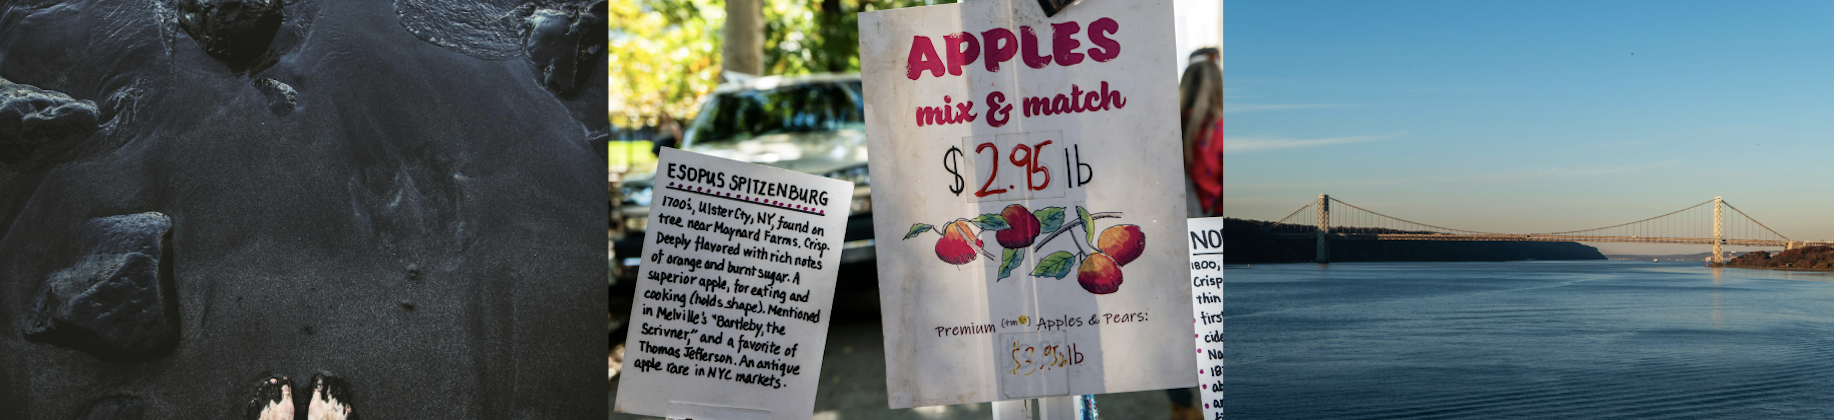 ESOPUS SPITZENBURG
1700's, Ulster Cty, NY, found on
tree near Maynard Farms. Crisp.
Deeply flavored with rich notes
of orange and burnt sugar. A
superior apple, for eating and
cooking (holds shape). Mentioned
in Melville's "Bartleby, the
Scrivner," and a favorite of
Thomas Jefferson. An antique
apple rare in NYC markets.
APPLES
mix & match
$2.95 lb
Premium (tm) Apples & Pears:
$3.95 lb
NO
1800,
Crisp
thin
first
cide
Na
18
ab
an